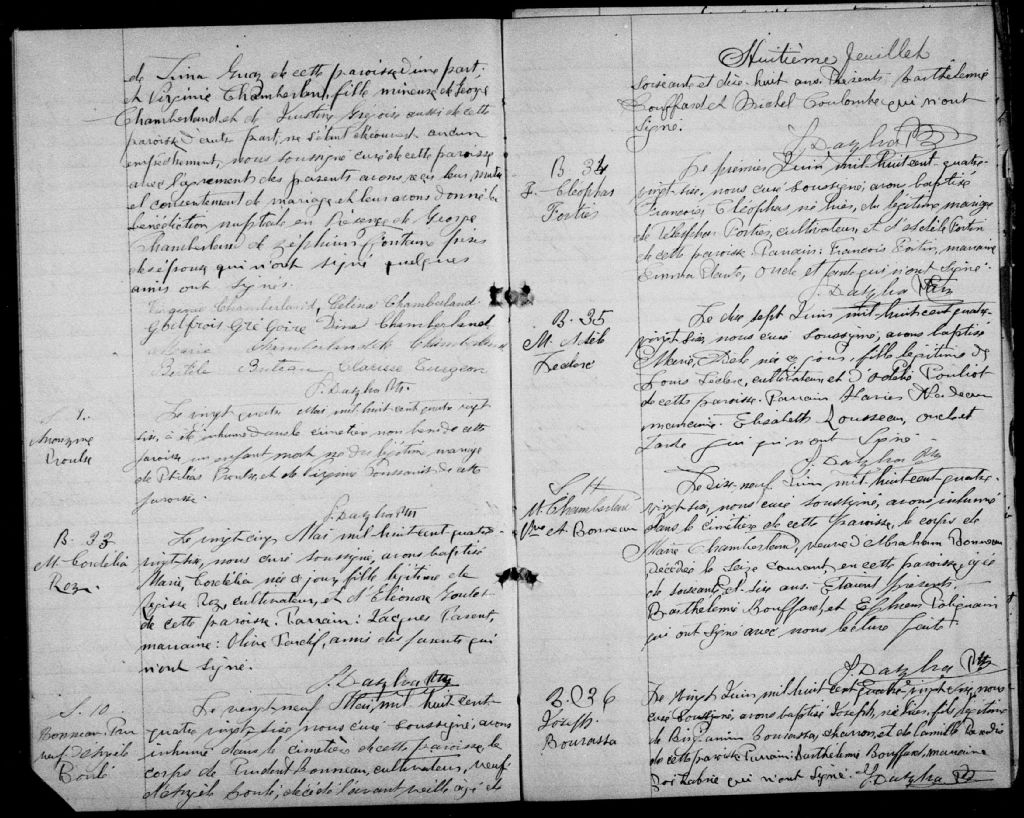 de cette paroisse d'une part,
et Virginie Chamberland, fille mineure de George
Chamberland et de Justine Grégoire aussi de cette
paroisse d'autre part, ne s'étant découvert aucun
empêchement, nous soussigné curé de cette paroisse
avec l'agrément des parents avons reçu leur mutuel
et consentement de mariage et leur avons donné la
bénédiction nuptiale en présence de George
Chamberland et Zephirin Fontaine
qui n'ont signé quelques
amis ont signés.
Virginie Chamberland, Célina Chamberland
Grégoire Dina Chamberland
Maria Chamberland Chamberland
Buteau Clarisse Turgeon
Ptre.
S. 
Anonyme
Proulx
Le vingt quatre Mai mil huit cent quatre vingt
six, a été inhumé dans le cimetière non béni de cette
paroisse un enfant mort né du légitime mariage
de Philias Proulx et de Virginie de cette
paroisse.
Ptre
B. 33
M. Cordélia
Roy.
Le vingt cinq Mai mil huit cent quatre
vingt six, nous curé soussigné, avons baptisé
Marie, Cordélia née ce jour, fille légitime de
Régisse Roy, cultivateur, et d'Eléonore
de cette paroisse. Parrain: Jacques Parent,
marraine: Olive amis des parents qui
n'ont signé.
Ptre
S. 10
Bonneau Pru
veuf d'
Boulé
Le vingt neuf Mai, mil huit cent
quatre vingt six nous curé soussigné, avons
inhumé dans le cimetière de cette paroisse, le
corps de Prudent Bonneau, cultivateur, veuf
Boulé, décédé l'avant veille agé de
Huitième feuillet
soixante et dix huit ans. Présents Barthélemie
Bouffard et Michel Coulombe qui n'ont
signé.
B. 34
F. Cléophas
Fortier
Le premier Juin mil huit cent quatre
vingt six, nous curé soussigné, avons baptisé
François, Cléophas né hier, du légitime mariage
de Télesphore Fortier, cultivateur, et d' Fortin
de cette paroisse. Parrain: François Fortin, marraine
oncle et tante qui n'ont signé.
Ptre
B. 35
M. Adele
Leclerc
Le dix sept Juin mil huit cent quatre
vingt six, nous curé soussigné, avons baptisé
Marie, Adele née ce jour, fille légitime de
Louis Leclerc, cultivateur et d'Odélie Pouliot
de cette paroisse. Parrain Nadeau
marraine: Elisabeth Rousseau, oncle et
tante qui n'ont signé.
Ptre
S. 11
M. Chamberland
Vve A. Bonneau
Le dix neuf Juin mil huit cent quatre
vingt six, nous curé soussigné, avons inhumé
dans le cimetière de cette paroisse, le corps de
Marie Chamberland, veuve d'Abraham Bonneau
décédée le seize courant en cette paroisse, agée
de soixante et six ans. Etaient présents
Barthelemi Bouffard, et Ephrem
qui ont signé avec nous lecture faite.
Ptre
B. 36
Joseph
Bourassa
Le vingt Juin, mil huit cent quatre vingt six, nous
curé soussigné, avons baptisé Joseph, né hier, fils légitime
de Benjamin Bourassa, charron, et de Camille
de cette paroisse Parrain: Barthélemie Bouffard, marraine
qui n'ont signé.
Ptre